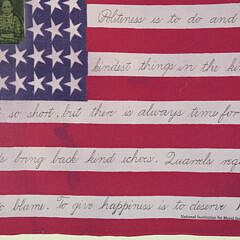 Politeness is to do and
kindest things in the kin
so short, but there is always time for
bring back kind echoes. Quarrels reg
to blame. To give happiness is to deserve
National Institution for Moral In